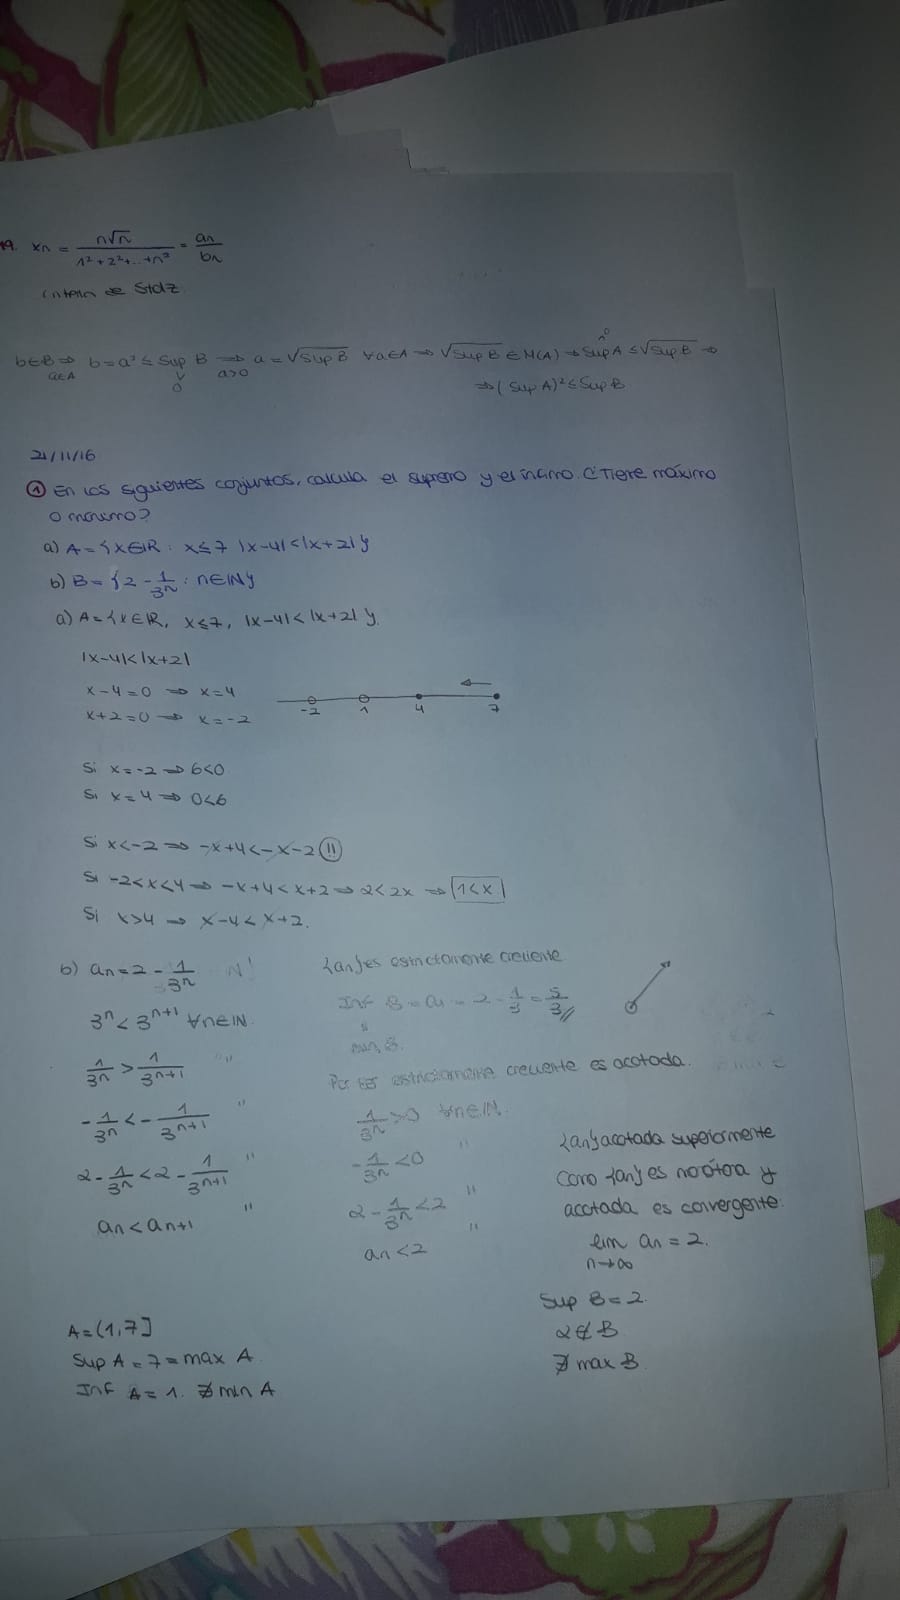 19. xn = n√n / 1²+2²+...+n² = an / bn
Criterio de Stolz
b∈B ⇒ b=a² ≤ Sup B ⇒ a = √Sup B ∀a∈A ⇒ √Sup B ∈ M(A) ⇒ Sup A ≤ √Sup B ⇒
a∈A
0
a>0
0
⇒ (Sup A)² ≤ Sup B
21/11/16
① En los siguientes conjuntos, calcula el supremo y el ínfimo. ¿Tiene máximo
o mínimo?
a) A = {x∈ℝ : x≤7 |x-4|<|x+2|}
b) B = {2 - 1/3ⁿ : n∈ℕ}
a) A = {x∈ℝ, x≤7, |x-4|<|x+2|}
|x-4|<|x+2|
x-4=0 ⇒ x=4
x+2=0 ⇒ x=-2
-2 1 4 7
Si x=-2 ⇒ 6<0
Si x=4 ⇒ 0<6
Si x<-2 ⇒ -x+4<-x-2 (!!)
Si -2<x<4 ⇒ -x+4<x+2 ⇒ 2<2x ⇒ 1<x
Si x>4 ⇒ x-4<x+2.
b) an = 2 - 1/3ⁿ
3ⁿ < 3ⁿ⁺¹ ∀n∈ℕ.
1/3ⁿ > 1/3ⁿ⁺¹ "
-1/3ⁿ < -1/3ⁿ⁺¹ "
2 - 1/3ⁿ < 2 - 1/3ⁿ⁺¹ "
an < an+1 "
{an} es estrictamente creciente
Inf B = a1 = 2 - 1/3 = 5/3 //
"
min B.
Por ser estrictamente creciente es acotada.
1/3ⁿ > 0 ∀n∈ℕ.
-1/3ⁿ < 0 "
2 - 1/3ⁿ < 2 "
an < 2
{an} acotada superiormente
Como {an} es monótona y
acotada es convergente.
lim an = 2.
n→∞
Sup B = 2
2∉B
∄ max B.
A = (1,7]
Sup A = 7 = max A
Inf A = 1. ∄ min A